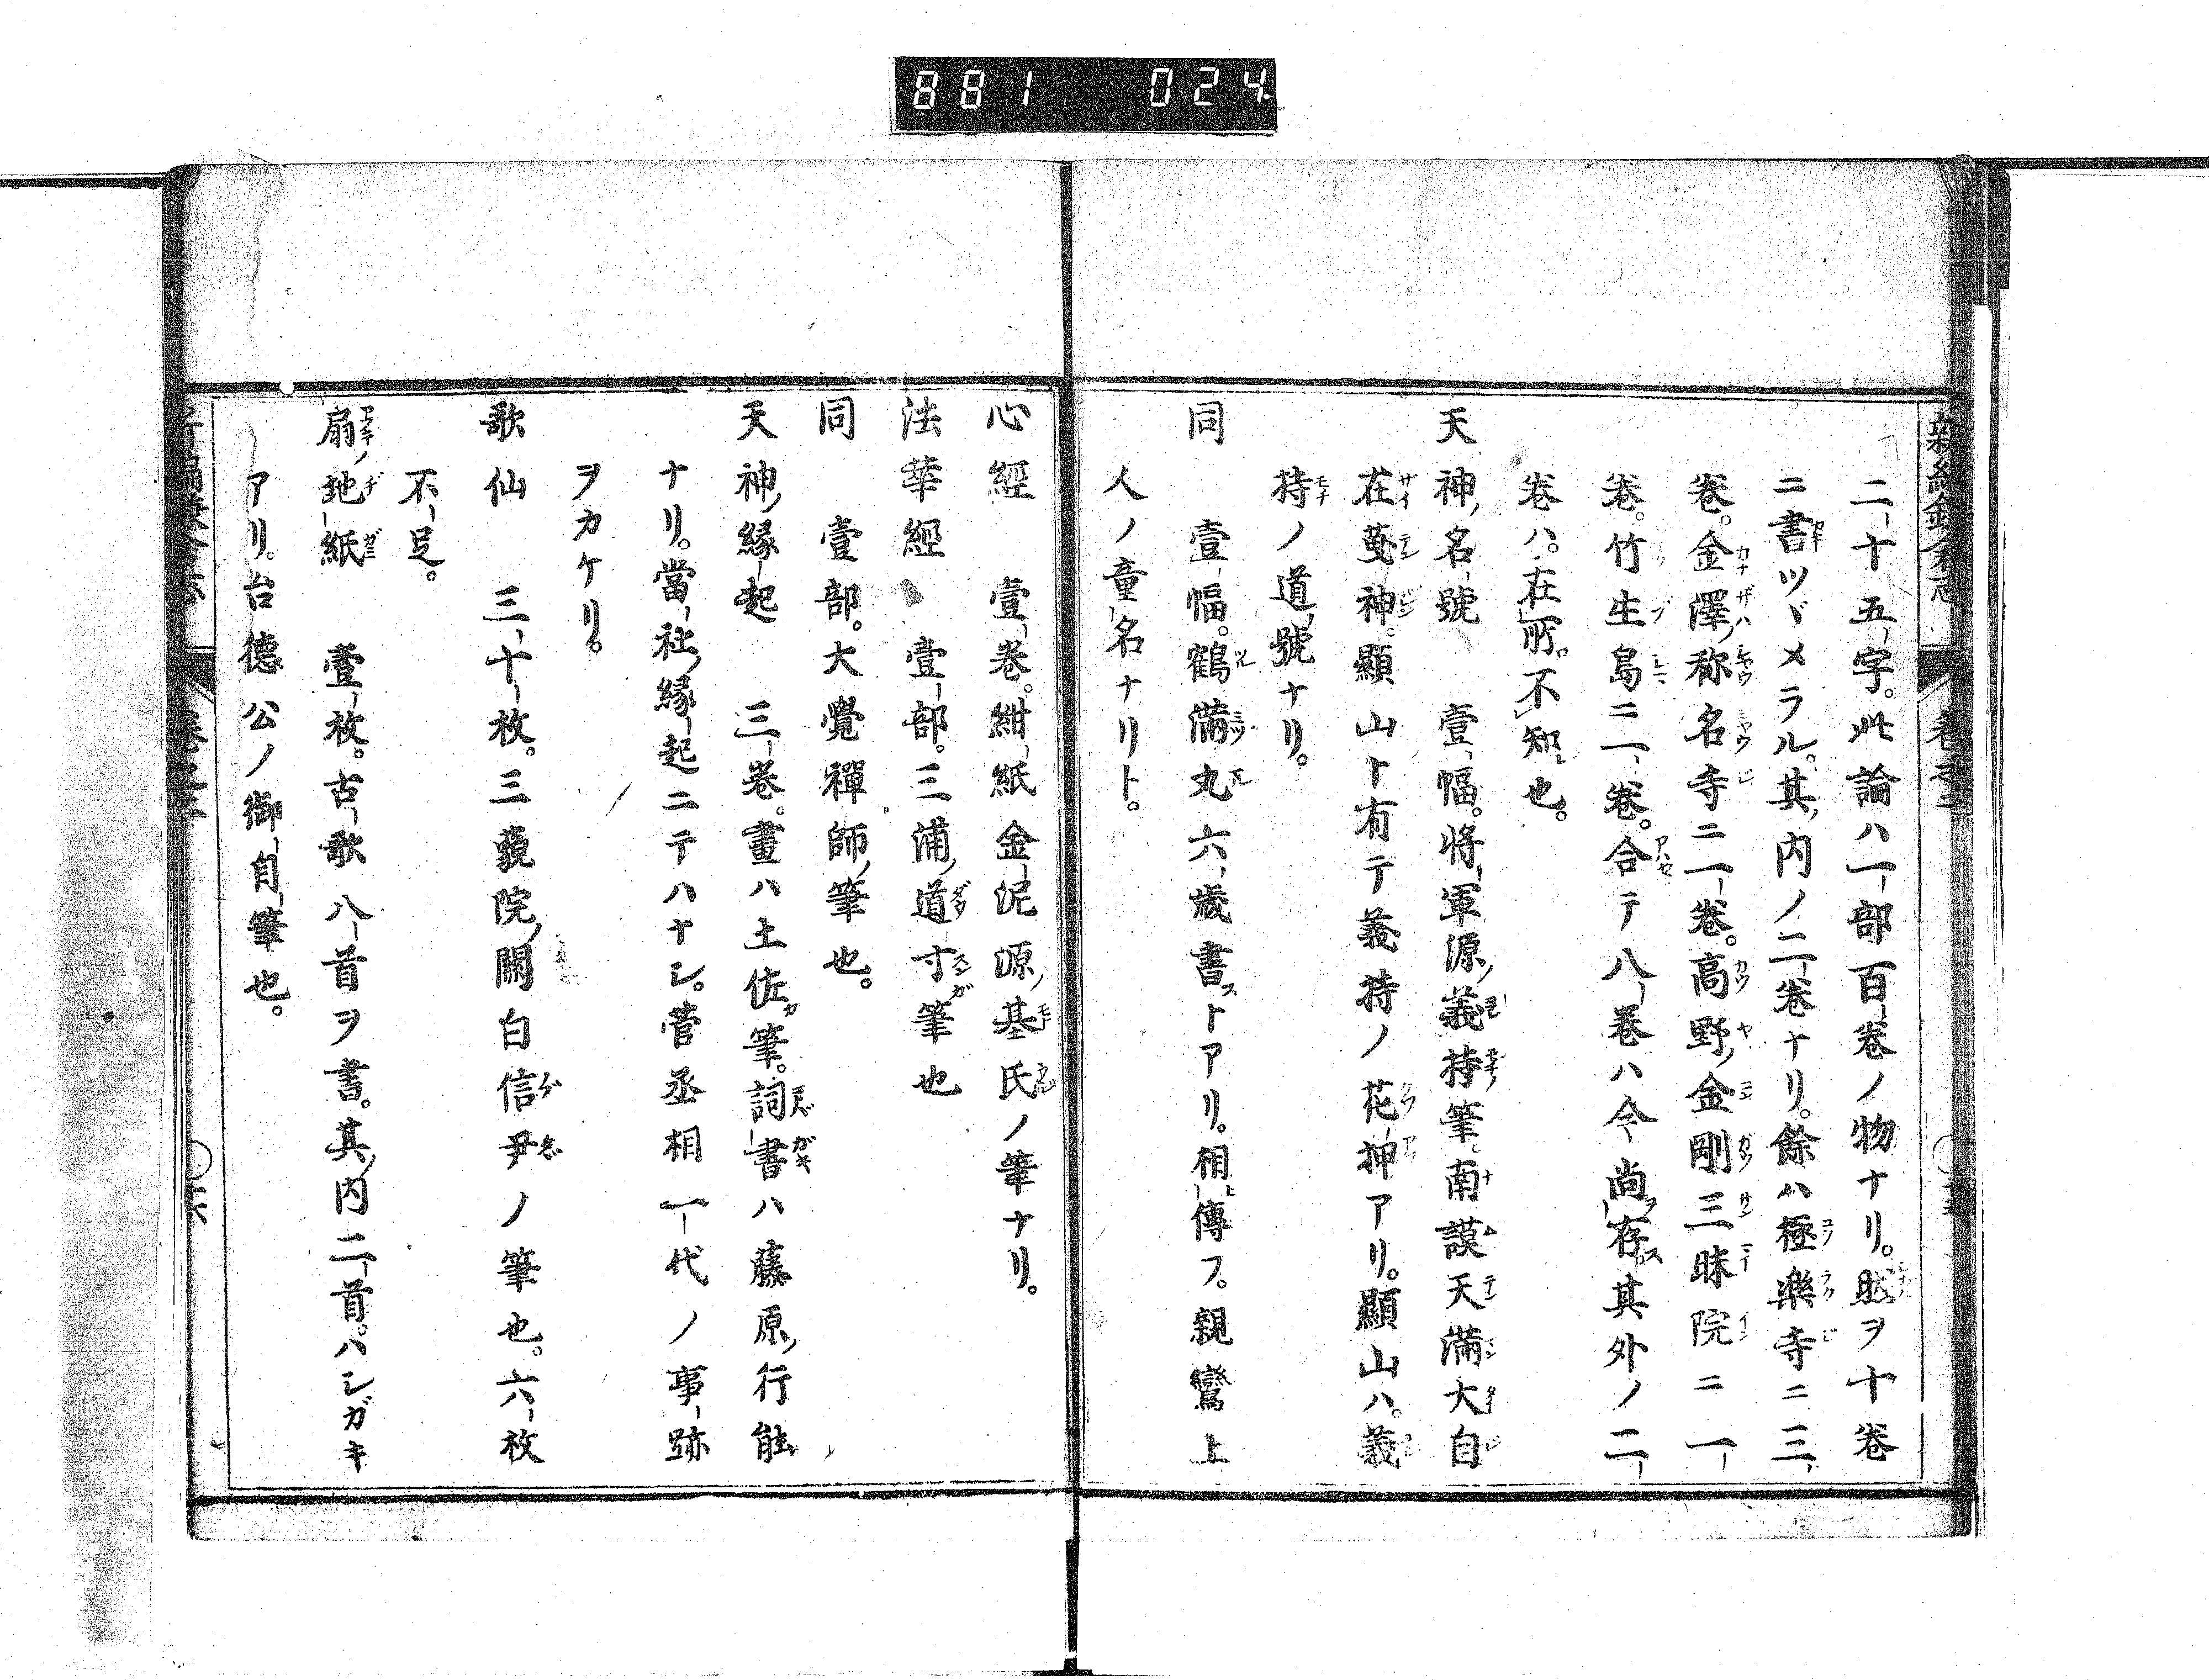 881 024
新編鎌倉志 卷之二
二十五字。此論ハ一部百卷ノ物ナリ。ヲ十卷
ニ書ツヾメラル。其内ノ二卷ナリ。餘ハ極樂寺ニ三
卷。金澤稱名寺ニ一卷。高野金剛三昧院ニ一
卷。竹生島ニ一卷。合テ八卷ハ今尚存ス。其外ノ二
卷ハ。在所不知也。
天神名號 壹幅。將軍源義持筆南謨天滿大自
在天神。顯山ト有テ義持ノ花押アリ。顯山ハ。義
持ノ道號ナリ。
同 壹幅。鶴滿丸六歳書ストアリ。相傳フ。親鸞上
人ノ童名ナリト。
心經 壹卷。紺紙金泥源基氏ノ筆ナリ。
法華經 壹部。三浦道寸筆也
同 壹部。大覺禪師筆也。
天神縁起 三卷。畫ハ土佐筆。詞書ハ藤原行能
ナリ。當社縁起ニテハナシ。菅丞相一代ノ事跡
ヲカケリ。
歌仙 三十枚。三藐院關白信尹ノ筆也。六枚
不足。
扇地紙 壹枚。古歌八首ヲ書。其内二首。ハシガキ
アリ。台德公ノ御自筆也。